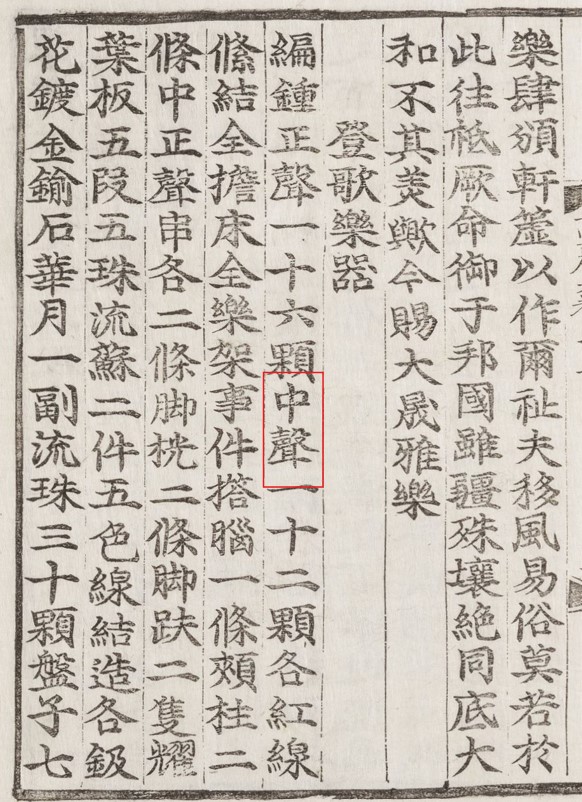 樂肆頒軒簴以作爾祉夫移風易俗莫若於
此往祗厥命御于邦國雖疆殊壤絶同底大
和不其美歟今賜大晟雅樂
登歌樂器
編鍾正聲一十六顆中聲一十二顆各紅線
絛結全擔床全樂架事件搭腦一條頰柱二
條中正聲串各二條脚桄二條脚趺二隻耀
葉板五段五珠流蘇二件五色線結造各鈒
花鍍金鍮石華月一副流珠三十顆盤子七